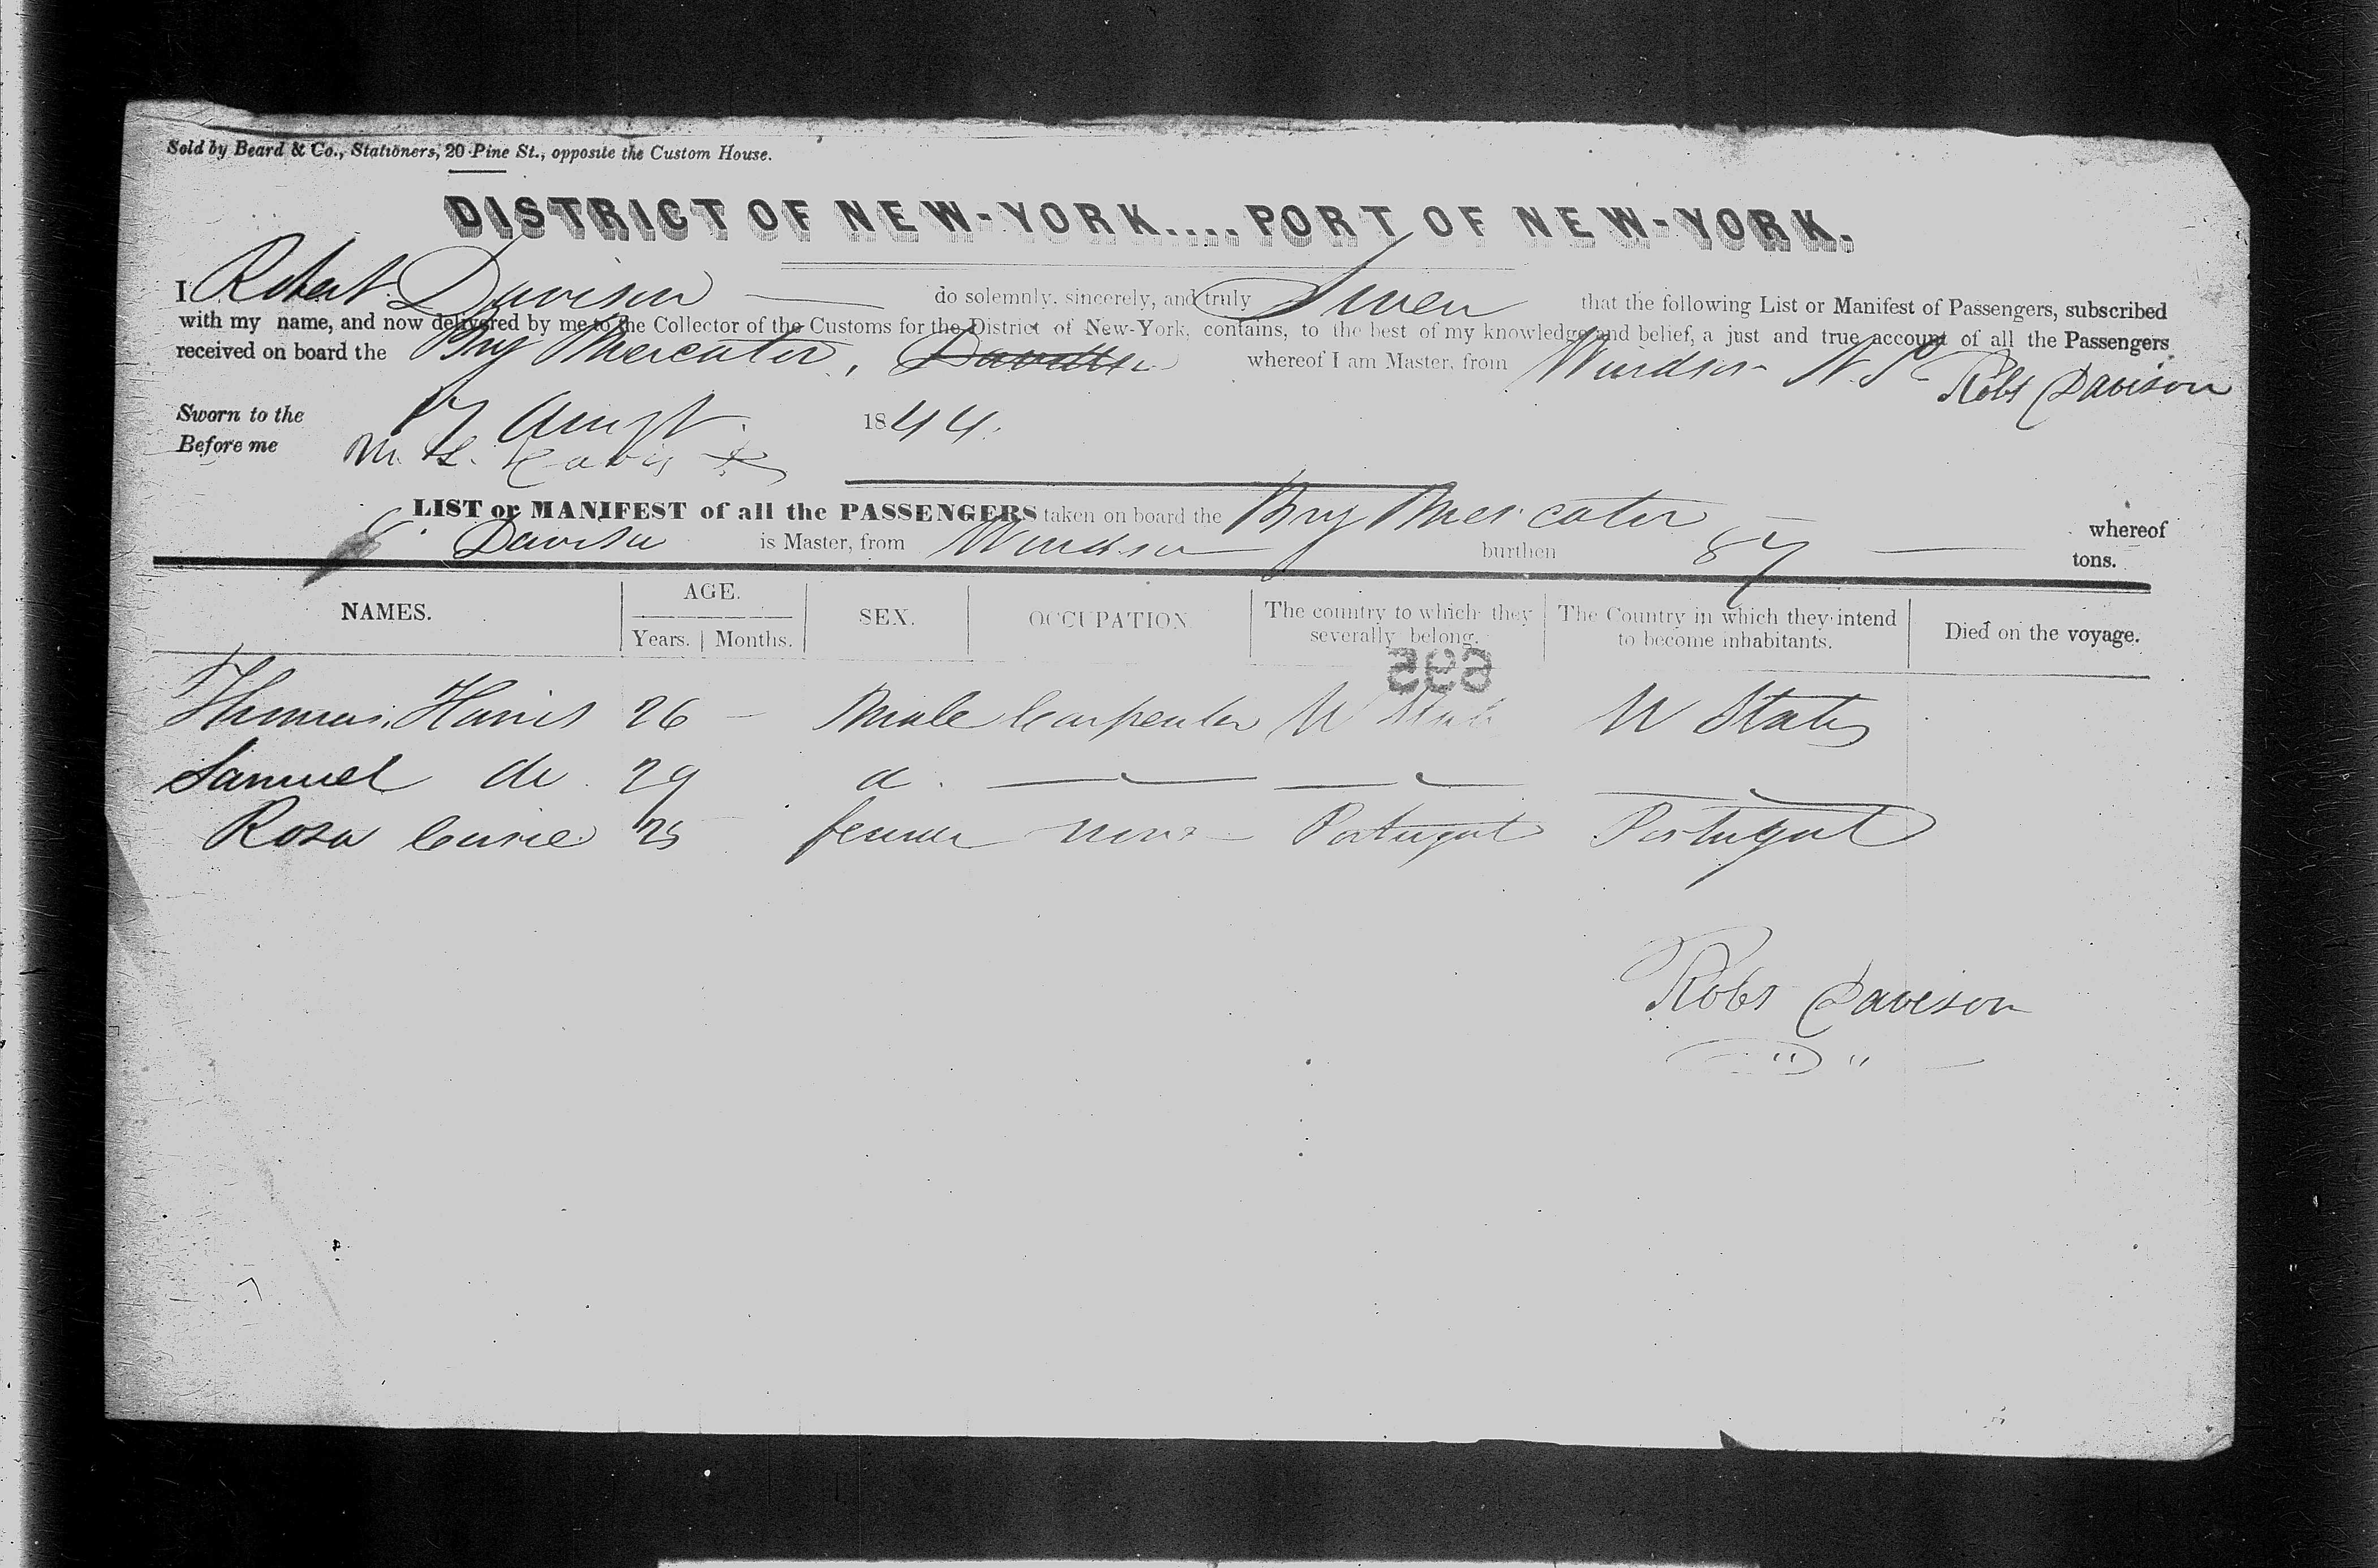 Sold by Beard & Co., Stationers, 20 Pine St., opposite the Custom House.
DISTRICT OF NEW-YORK.... PORT OF NEW-YORK.
I Robert Davison do solemnly, sincerely, and truly Swear that the following List or Manifest of Passengers, subscribed
with my name, and now delivered by me to the Collector of the Customs for the District of New-York, contains, to the best of my knowledge and belief, a just and true account of all the Passengers
received on board the Brig Mercator, whereof I am Master, from Windsor N.S. Robt Davison
Sworn to the 17 Augst 1844.
Before me
LIST or MANIFEST of all the PASSENGERS taken on board the Brig Mercator whereof
Davison is Master, from Windsor burthen 87 tons.
NAMES. AGE. SEX. OCCUPATION The country to which they severally belong. The Country in which they intend to become inhabitants. Died on the voyage.
Years. Months.
595
Thomas Harris 26 - Male Carpenter U States U States
Samuel do 29 d.
Rosa 25 female none Portugal Portugal
Robt Davison